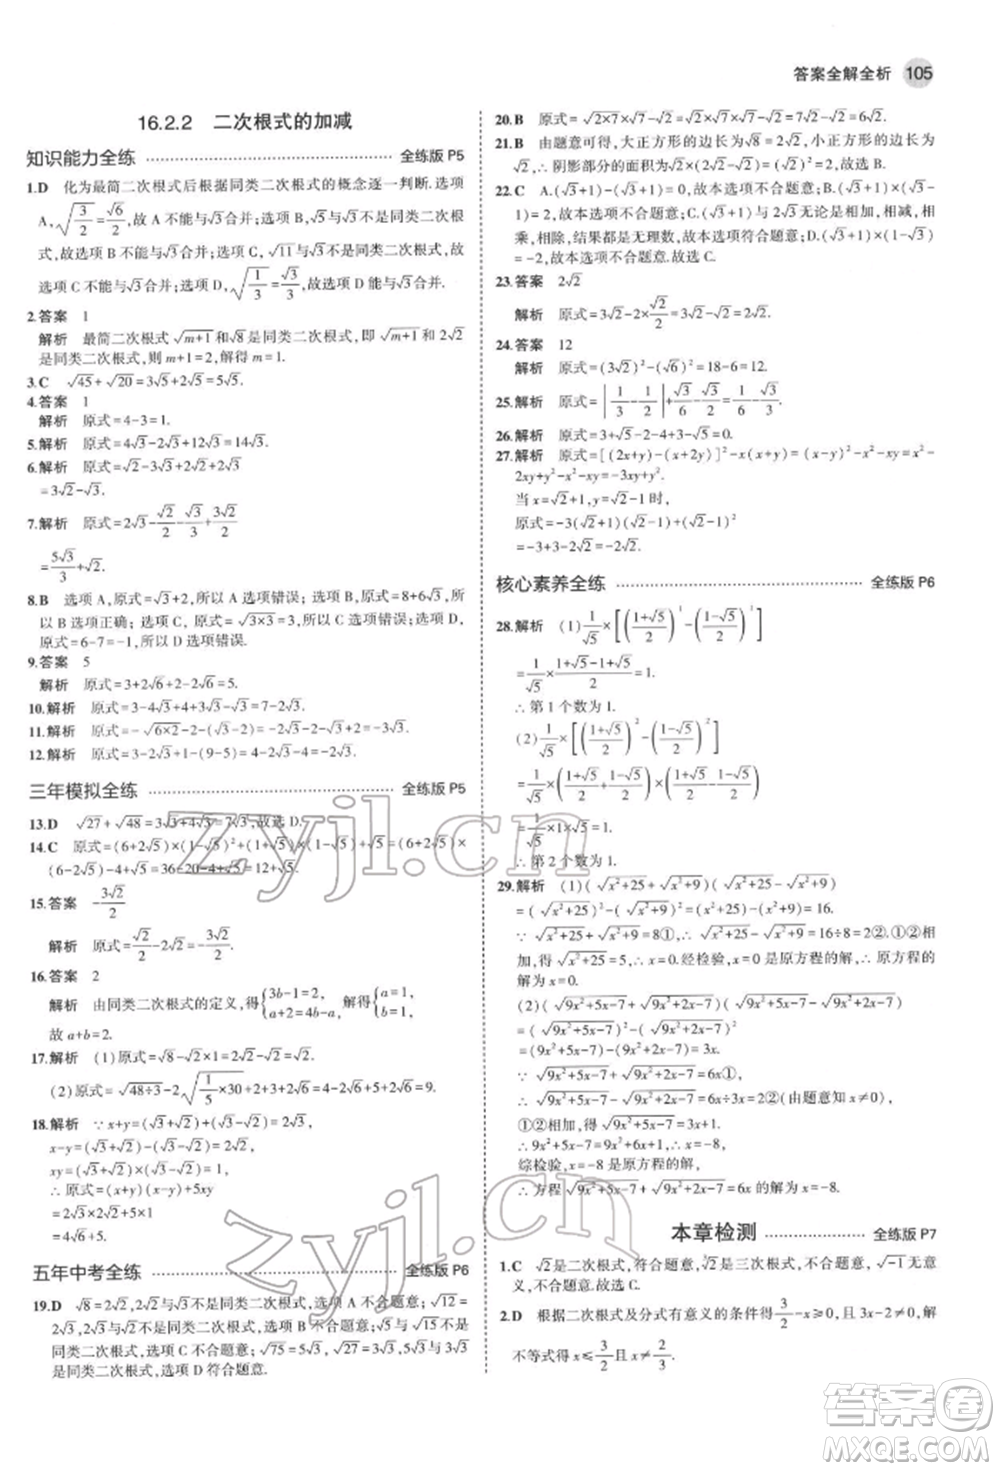 答案全解全析 105
16.2.2 二次根式的加减
知识能力全练 全练版 P5
1.D 化为最简二次根式后根据同类二次根式的概念逐一判断.选项
A,√(3/2)=√6/2,故 A 不能与√3合并;选项 B,√8=2√2不是同类二次根
式,故选项 B 不能与√3合并;选项 C,√11与√3不是同类二次根式,
故选项 C 不能与√3合并;选项 D,√(1/3)=√3/3,与√3能合并.故选 D.
2.答案 1
解析 最简二次根式√(m+1)和√8是同类二次根式,即√(m+1)和2√2
是同类二次根式,则 m+1=2,解得 m=1.
3.C √45+√20=3√5+2√5=5√5.
4.答案 1
解析 原式=4-3=1.
5.解析 原式=4√3-2√3+12√3=14√3.
6.解析 原式=2√2-3√3+√2+2√3
=3√2-√3.
7.解析 原式=2√3-√2/2-√3/3+3√2/2
=5√3/3+√2.
8.B 选项 A,原式=√3+2,所以 A 选项错误;B 选项,原式=8+6√2,所
以 B 选项正确;C 选项,原式=√(3×3)=3,所以 C 选项错误;D 选项,
原式=6-7=-1,所以 D 选项错误.
9.答案 5
解析 原式=3+2√6+2-2√6=5.
10.解析 原式=3-4√3+4+3√3-6=1-√3.
11.解析 原式=-√(6×2)-2-(√3-2)=-2√3-2-√3+2=-3√3.
12.解析 原式=3-2√2+1-(9-5)=4-2√2-4=-2√2.
三年模拟全练 全练版 P5
13.D √27+√48=3√3+4√3=7√3,故选 D.
14.C 原式=(6+2√5)×(1-√5)×(1+√5)+√5=(6+2√5)×
(6-2√5)+√5=36-20+√5=16+√5.
15.答案 -3√2/2
解析 原式=√2/2-2√2=-3√2/2.
16.答案 2
解析 由同类二次根式的定义,得{3b-1=2, a+2=4b-a, 解得{a=1, b=1,
故 a+b=2.
17.解析 (1)原式=√8-√2×1=2√2-√2=√2.
(2)原式=√(48÷3)-2√(1/5×30)+2√6+5=4-2√6+2√6+5=9.
18.解析 ∵x+y=(√3+√2)+(√3-√2)=2√3,
x-y=(√3+√2)-(√3-√2)=2√2,
xy=(√3+√2)(√3-√2)=3-2=1,
∴原式=(x+y)(x-y)+5xy
=2√3×2√2+5×1
=4√6+5.
五年中考全练 全练版 P6
19.D √8=2√2,2√2与√3不是同类二次根式,选项 A 不合题意;√12=
2√3,2√3与√2不是同类二次根式,选项 B 不合题意;√5与√15不是
同类二次根式,选项 C 不合题意;√75=5√3,√27=3√3,5√3与3√3是
同类二次根式,选项 D 符合题意.
20.B 原式=√2×√7×√7-√2=√2×√7×√7-√2=7√2-√2=6√2.
21.B 由题意可得,大正方形的边长为√3,小正方形的边长为
√2,∴阴影部分的面积为√2×(√3-√2)×2=2√6-4.故选 B.
22.C A.(√3+1)-(√3+1)=0,故本选项不合题意;B.(√3+1)×(√3-
1)=2,故本选项不合题意;C.(√3+1)与2√3无论是相加,相减,相
乘,相除,结果都是无理数,故本选项符合题意;D.(√3+1)×(1-√3)
=-2,故本选项不合题意.故选 C.
23.答案 2√2
解析 原式=3√2-2×√2/2=3√2-√2=2√2.
24.答案 12
解析 原式=(3√2)²-(√6)²=18-6=12.
25.解析 原式=|1/3-1/2|+√3/6-√3/2=1/6-√3/3.
26.解析 原式=3+√5-2-4+3-√5=0.
27.解析 原式=[(2x+y)-(x+2y)]²-x(x+y)=(x-y)²-x²-xy=x²-
2xy+y²-x²-xy=-3xy+y².
当 x=√2+1,y=√2-1时,
原式=-3(√2+1)(√2-1)+(√2-1)²
=-3+3-2√2=-2√2.
核心素养全练 全练版 P6
28.解析 (1)1/√5×[((1+√5)/2)¹-((1-√5)/2)¹]
=1/√5×(1+√5-1+√5)/2=1.
∴第 1 个数为 1.
(2)1/√5×[((1+√5)/2)²-((1-√5)/2)²]
=1/√5×((1+√5)/2+(1-√5)/2)((1+√5)/2-(1-√5)/2)
=1/√5×1×√5=1.
∴第 2 个数为 1.
29.解析 (1)(√(x²+25)+√(x²+9))(√(x²+25)-√(x²+9))
=(√(x²+25))²-(√(x²+9))²=(x²+25)-(x²+9)=16.
∵√(x²+25)+√(x²+9)=8①,∴√(x²+25)-√(x²+9)=16÷8=2②.①②相
加,得√(x²+25)=5,∴x²=0.经检验,x=0是原方程的解,∴原方程的
解是 x=0.
(2)(√(9x²+5x-7)+√(9x²+2x-7))(√(9x²+5x-7)-√(9x²+2x-7))
=(√(9x²+5x-7))²-(√(9x²+2x-7))²
=(9x²+5x-7)-(9x²+2x-7)=3x.
∵√(9x²+5x-7)-√(9x²+2x-7)=x①,
∴√(9x²+5x-7)+√(9x²+2x-7)=3x÷x=3②(由题意知 x≠0),
①②相加并化简,得√(9x²+5x-7)=
∴9x²+5x-7=
综检验,x=-8是原方程的解.
∴方程√(9x²+5x-7)-√(9x²+2x-7)=x的解是x=-8.
本章检测 全练版 P7
1.C √2是二次根式,符合题意;∛2是三次根式,不合题意;√π
不合题意.故选C.
2.D 根据二次根式及分式有意义的条件得3/2-x≥0,且3x-2≠0,解
不等式得x≤3/2且x≠2/3.
zyjl.cn
zyjl.cn
答案圈
MXQE.COM